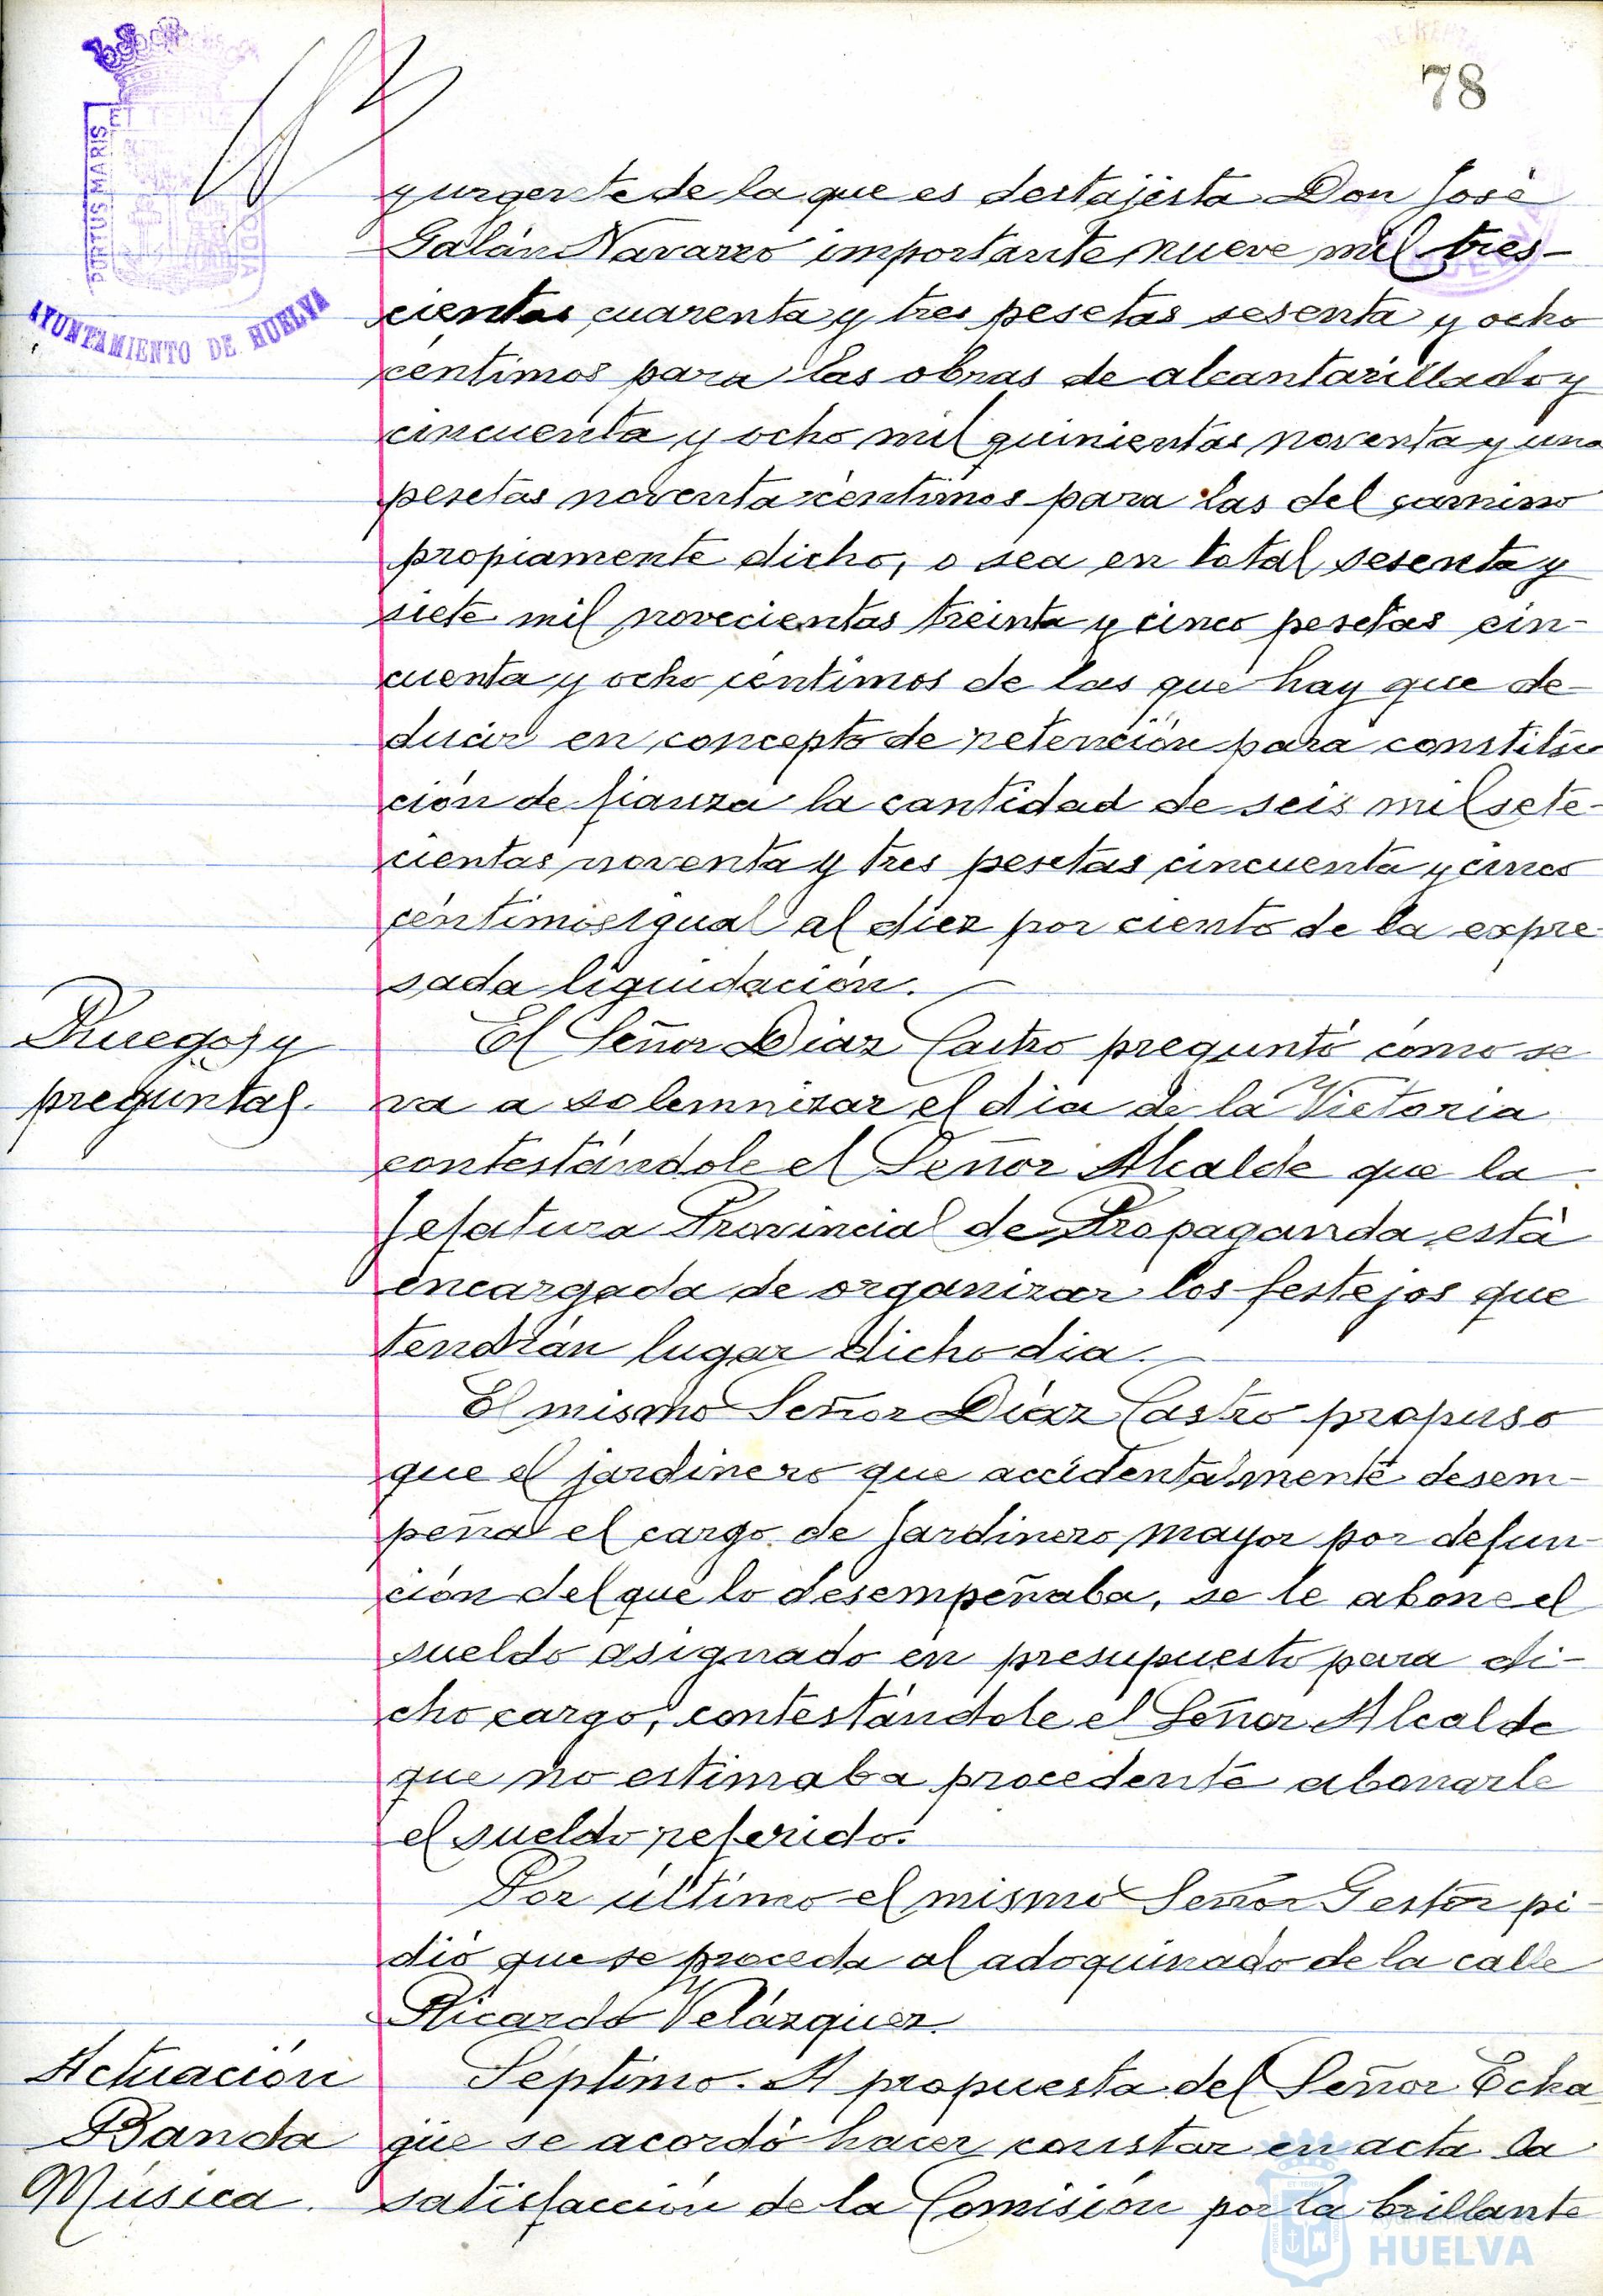 78
PORTUS MARIS
AYUNTAMIENTO DE HUELVA
y urgente de la que es destajista Don José
Galán Navarro importante nueve mil tres-
cientas cuarenta y tres pesetas sesenta y ocho
céntimos para las obras de alcantarillado y
cincuenta y ocho mil quinientas noventa y una
pesetas noventa céntimos para las del camino
propiamente dicho, o sea en total sesenta y
siete mil novecientas treinta y cinco pesetas cin-
cuenta y ocho céntimos de las que hay que de-
ducir en concepto de retención para constitu
ción de fianza la cantidad de seis mil sete-
cientas noventa y tres pesetas cincuenta y cinco
céntimos igual al diez por ciento de la expre-
sada liquidación.
Ruegos y
preguntas.
El Señor Díaz Castro preguntó cómo se
va a solemnizar el día de la Victoria
contestándole el Señor Alcalde que la
Jefatura Provincial de Propaganda está
encargada de organizar los festejos que
tendrán lugar dicho día.
El mismo Señor Díaz Castro propuso
que el jardinero que accidentalmente desem-
peña el cargo de Jardinero mayor por defun-
ción del que lo desempeñaba, se le abone el
sueldo asignado en presupuesto para di-
cho cargo, contestándole el Señor Alcalde
que no estimaba procedente abonarle
el sueldo referido.
Por último el mismo Señor Gestor pi-
dió que se proceda al adoquinado de la calle
Ricardo Velázquez.
Actuación
Banda
Música.
Séptimo. A propuesta del Señor Echa-
güe se acordó hacer constar en acta la
satisfacción de la Comisión por la brillante
Ayuntamiento de
HUELVA